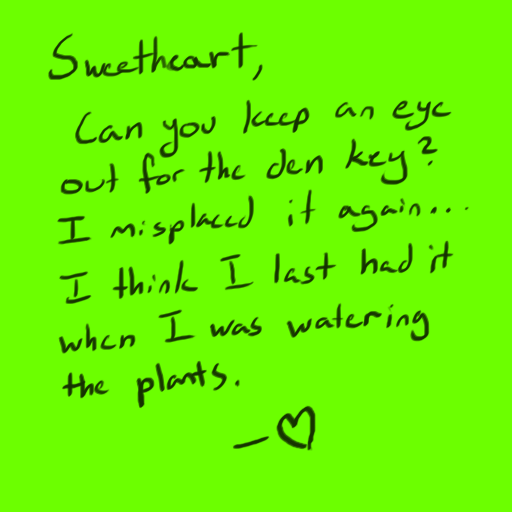 Sweetheart,
Can you keep an eye
out for the den key?
I misplaced it again...
I think I last had it
when I was watering
the plants.
—♡